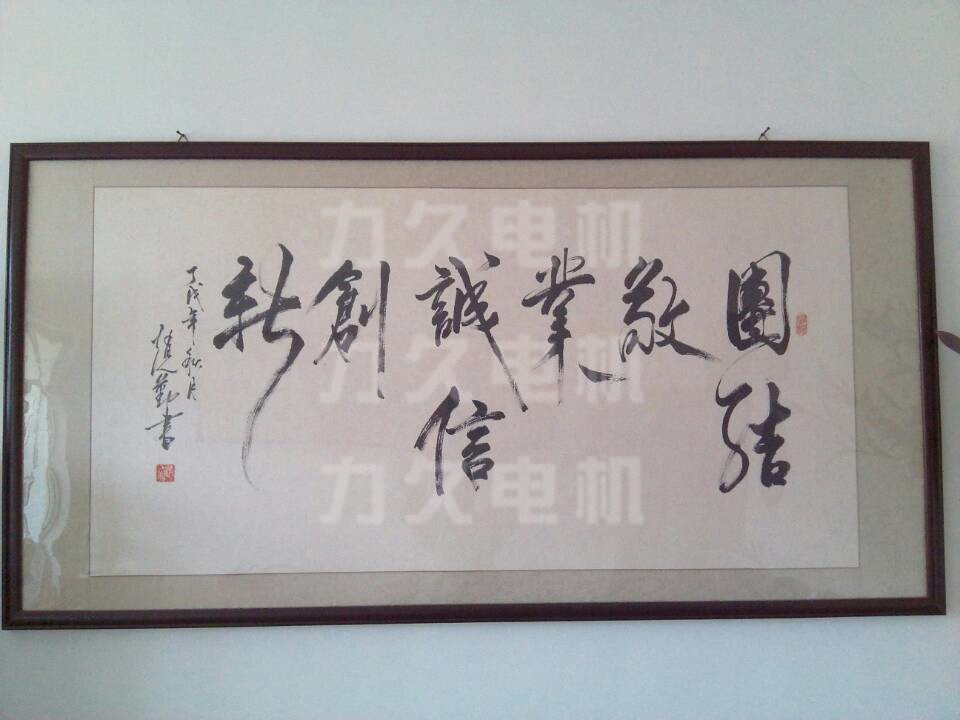 團結
敬
業
誠信
創
新
年秋月
勤書
力久电机
力久电机
力久电机